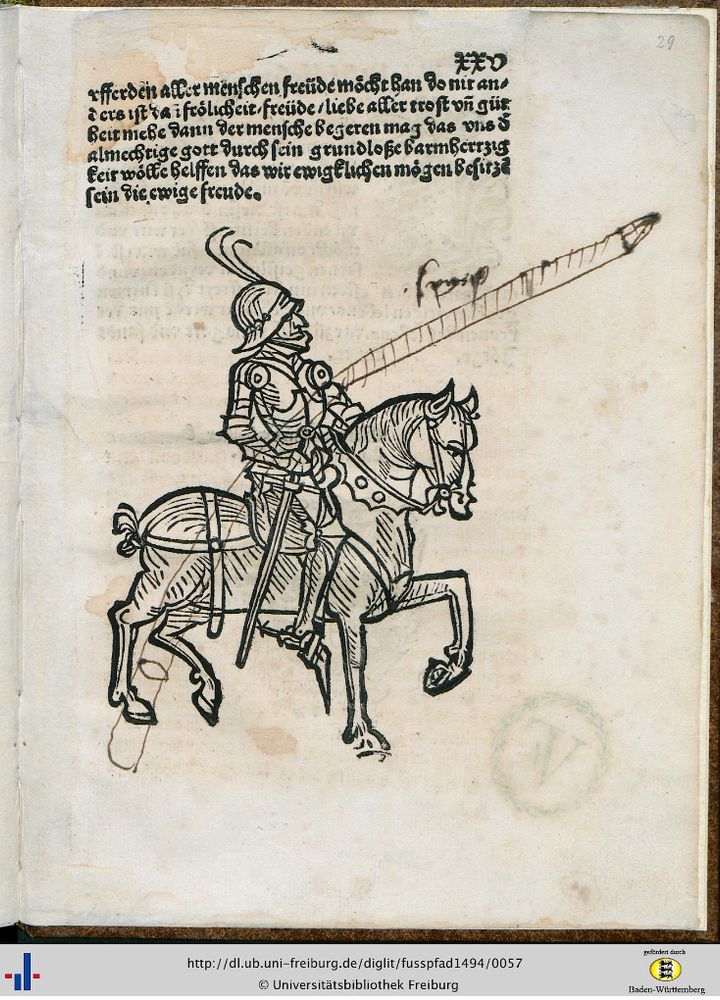 29
XXV
vfferden aller menschen freüde möcht han do nit an-
ders ist dañ frölicheit/freüde/liebe aller trost vñ güt
heit mehe dann der mensche begeren mag das vns d̄
almechtige gott durch sein grundloße barmhertzig
keit wölle helffen das wir ewigklichen mögen besitzē
sein die ewige freude.
http://dl.ub.uni-freiburg.de/diglit/fusspfad1494/0057
© Universitätsbibliothek Freiburg
gefördert durch
Baden-Württemberg